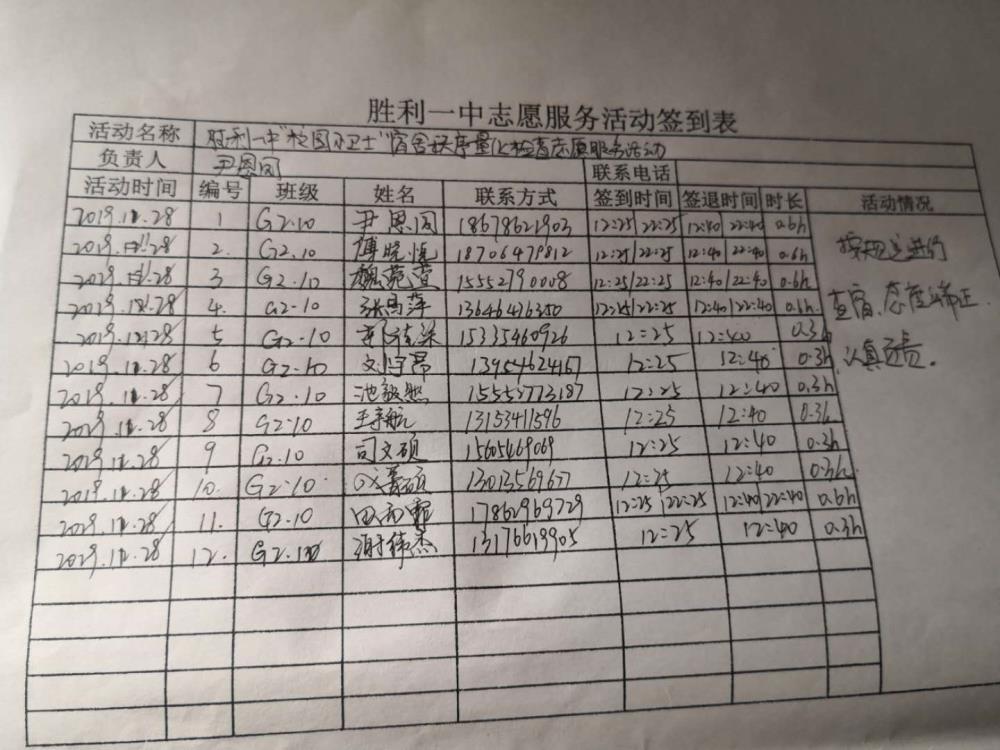 胜利一中志愿服务活动签到表
活动名称 胜利一中"校园卫士"宿舍秩序量化检查志愿服务活动
负责人 尹恩 联系电话
活动时间 编号 班级 姓名 联系方式 签到时间 签退时间 时长 活动情况
2019.11.28 1 G2.10 尹恩 18678621903 12:25/22:25 12:40/22:40 0.6h
2019.11.28 2. G2.10 傅晓悦 18706479812 12:25/22:25 12:40/22:40 0.6h
2019.11.28 3 G2.10 魏苑萱 15552790008 12:25/22:25 12:40/22:40 0.6h
2019.11.28 4. G2-10 张萍 13646426350 12:25/22:25 12:40/22:40 0.6h
2019.11.28 5 G2-10 15335460926 12:25 12:40 0.3h
2019.11.28 6 G2-10 刘 13954624167 12:25 12:40 0.3h
2019.11.28 7 G2-10 池毅然 12:25 12:40 0.3h
2019.11.28 8 G2-10 王宇航 13153411596 12:25 12:40 0.3h
2019.11.28 9 G2-10 司文硕 15605469069 12:25 12:40 0.3h
2019.11.28 10. G2-10 13013569677 12:25 12:40 0.3h
2019.11.28 11. G2-10 田 17862969729 12:25/22:25 12:40/22:40 0.6h
2019.11.28 12. G2-10 谢伟杰 13176619905 12:25 12:40 0.3h
按规定进行
查宿,态度端正
认真负责.